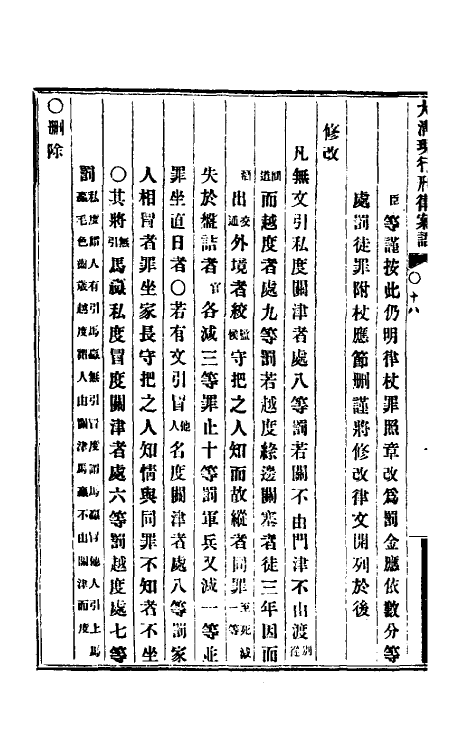 大清現行刑律案語
〇十八
臣等謹按此仍明律杖罪照章改爲罰金應依數分等
處罰徒罪附杖應節刪謹將修改律文開列於後
修改
凡無文引私度關津者處八等罰若關不由門津不由渡別從
間道而越度者處九等罰若越度緣邊關塞者徒三年因而
潛出交通外境者絞監候守把之人知而故縱者同罪至死減一等
失於盤詰者官各減三等罪止十等罰軍兵又減一等並
罪坐直日者〇若有文引冒他人名度關津者處八等罰家
人相冒者罪坐家長守把之人知情與同罪不知者不坐
〇其將無引馬驘私度冒度關津者處六等罰越度處七等
罰私度謂人有引馬驘無引冒度謂馬驘冒他人引上馬驘毛色齒歲越度謂人由關津馬驘不由關津而度
〇刪除